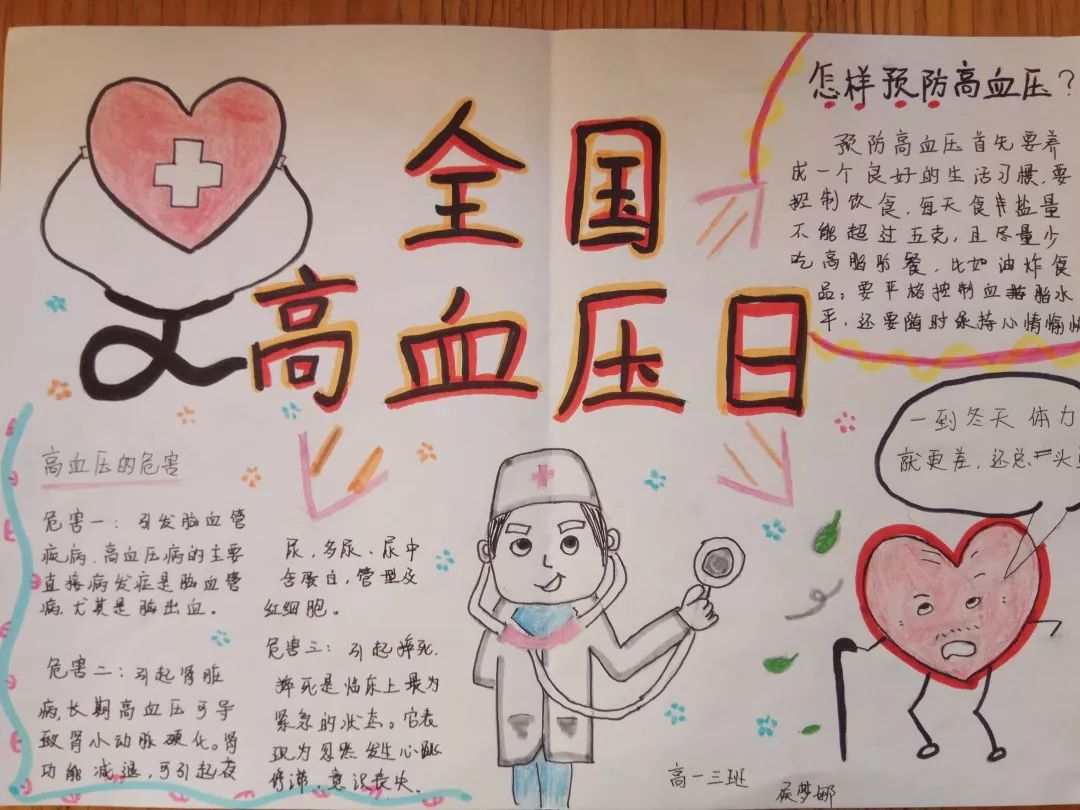 全国
高血压日
怎样预防高血压？
预防高血压首先要养
成一个良好的生活习惯，要
控制饮食，每天食盐量
不能超过五克，且尽量少
吃高脂肪餐，比如油炸食
品。要严格控制血脂水
平，还要随时保持心情愉
一到冬天体力
就更差，还总一头
高血压的危害
危害一：引发脑血管
疾病，高血压病的主要
直接病发症是脑血管
病尤其是脑出血。
危害二：引起肾脏
病，长期高血压可导
致肾小动脉硬化。肾
功能减退，可引起夜
尿，多尿、尿中
含蛋白，管型及
红细胞。
危害三：引起猝死.
猝死是临床上最为
紧急的状态。它表
现为忽然发生心跳
停滞，意识丧失.
高一三班
梦娜